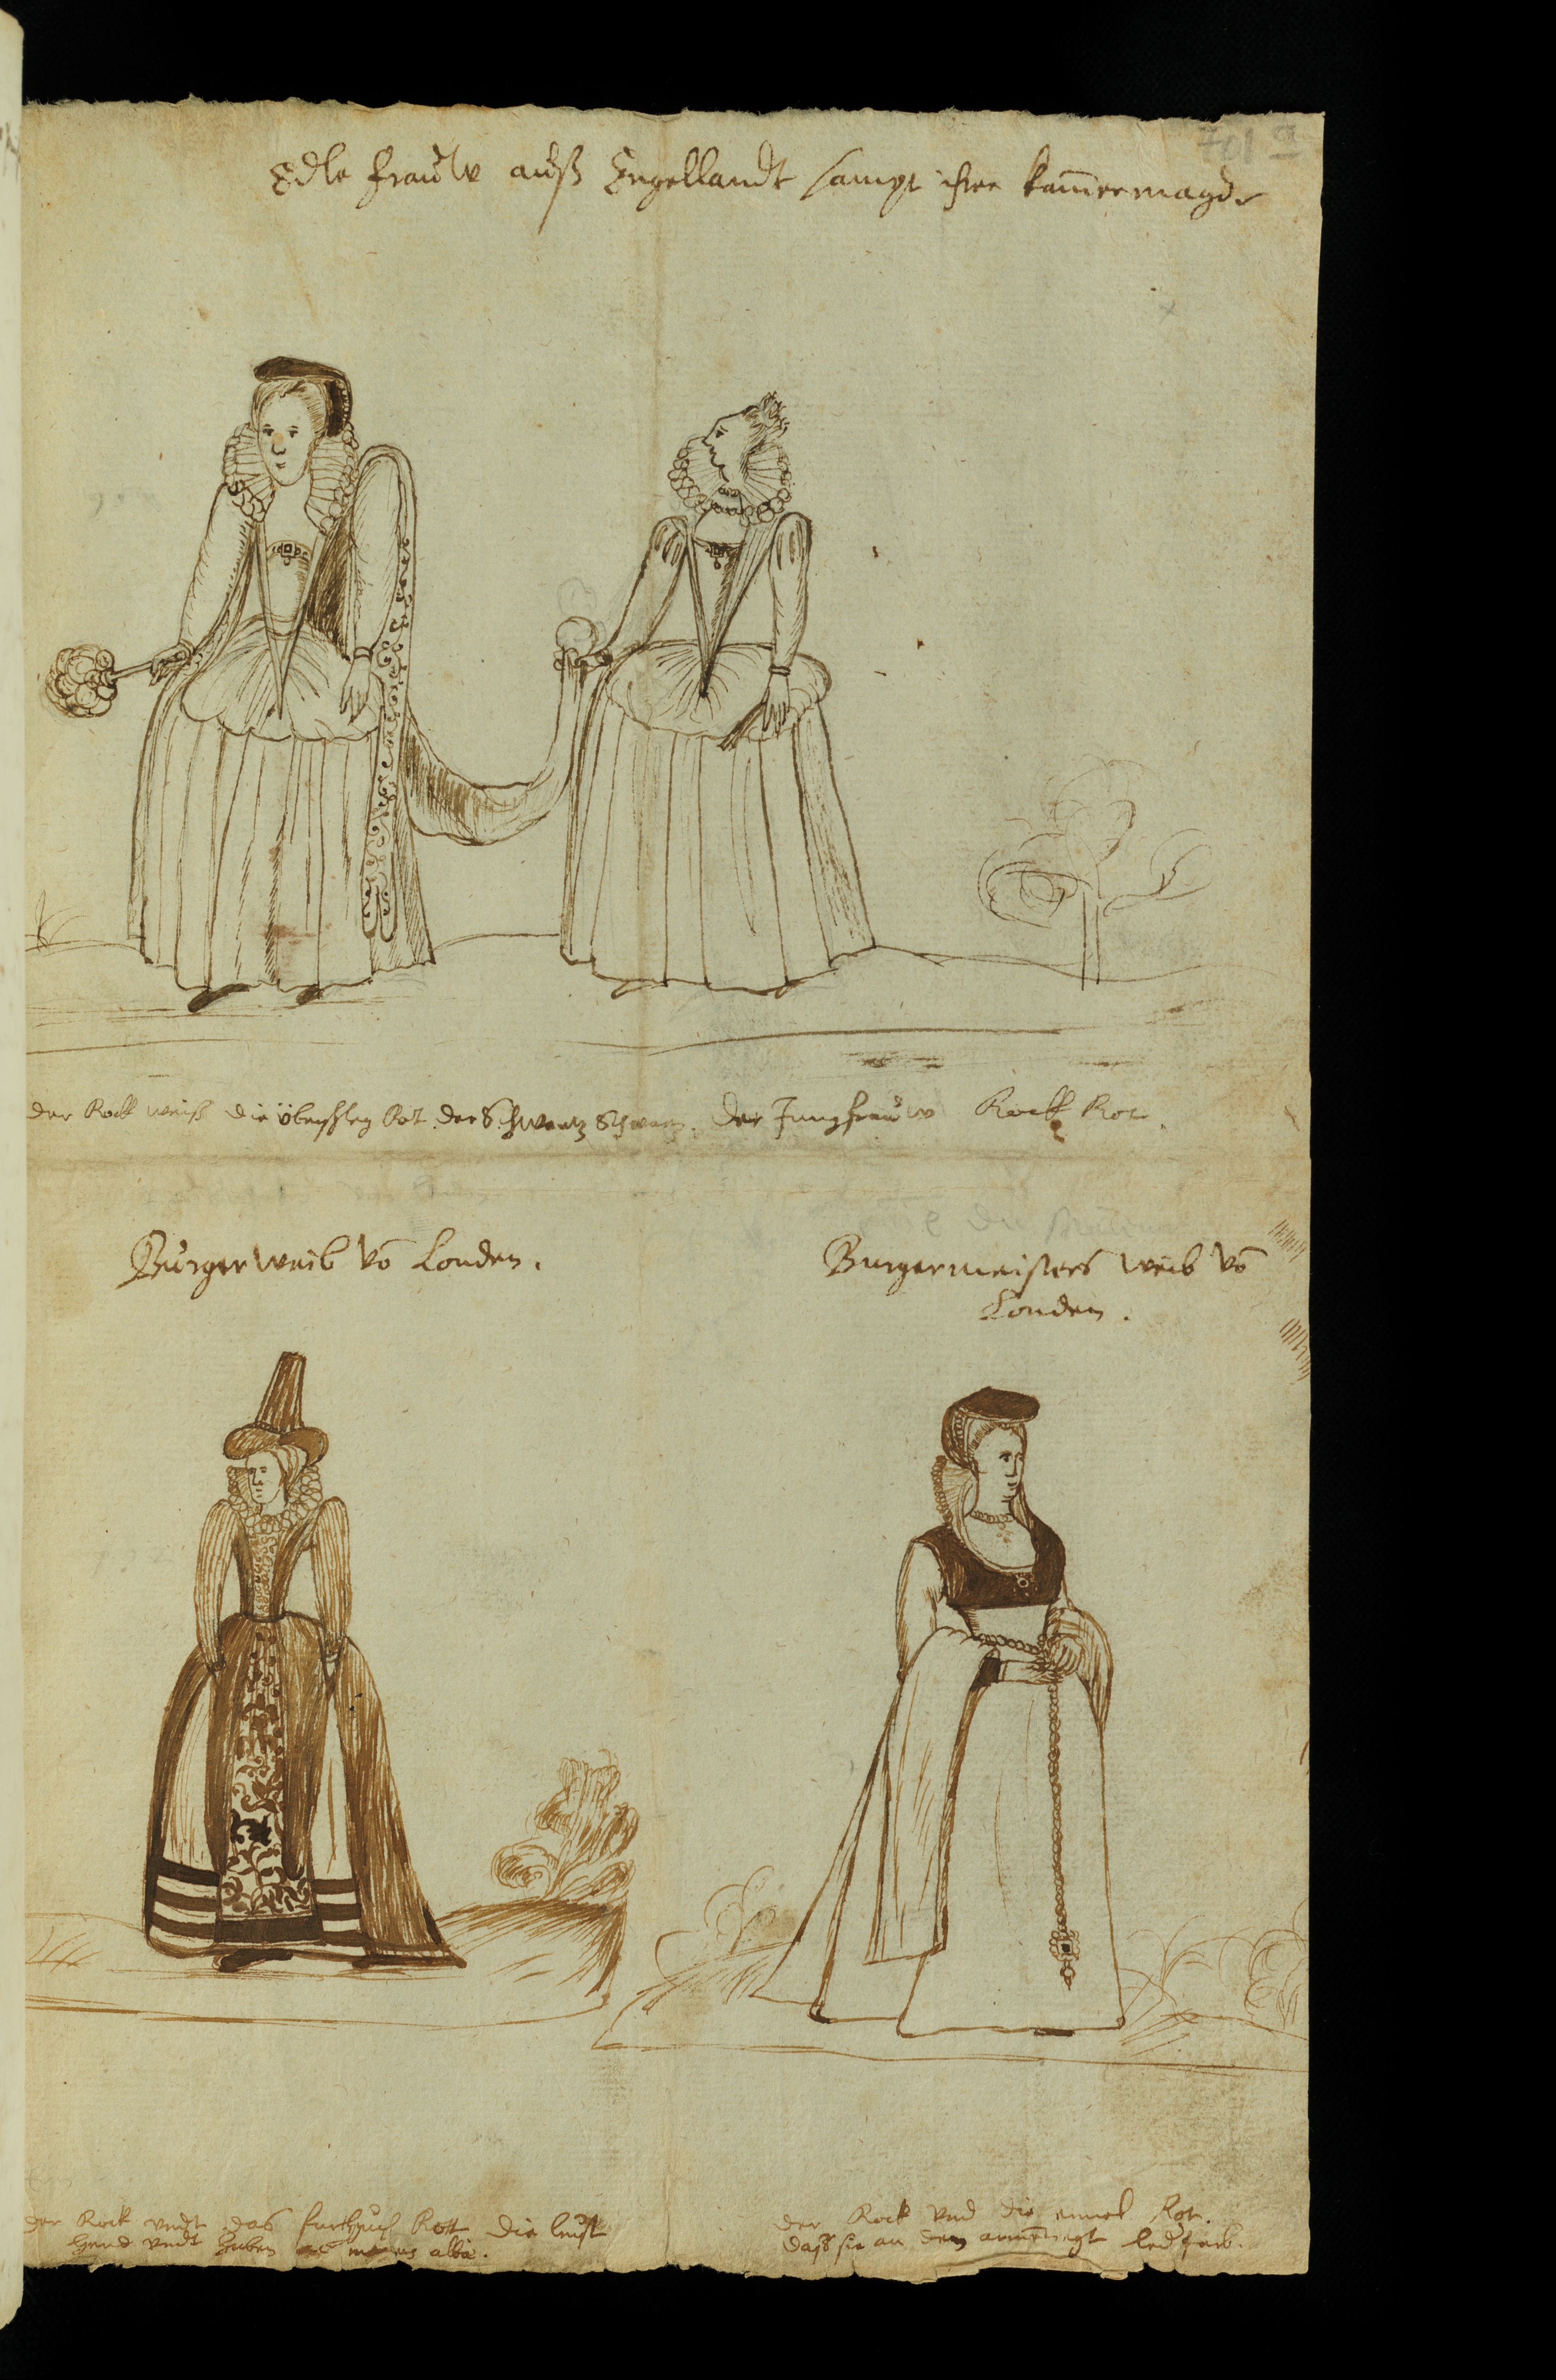 701 a
Edle frauw auß Engellandt sampt ihrer kam̄ermagd
der Rock weiß die überschleg Rot der Schwantz Schwartz. der Jungfrauw Rock Rot.
Burger weib vō Londen.
Burgermeisters weib vō
Londen.
der Rock vndt das furthuch Rott die brust
hend vndt alba.
der Rock vnd die ermel Rot.
daß sie an dem armē tregt ledfarb.